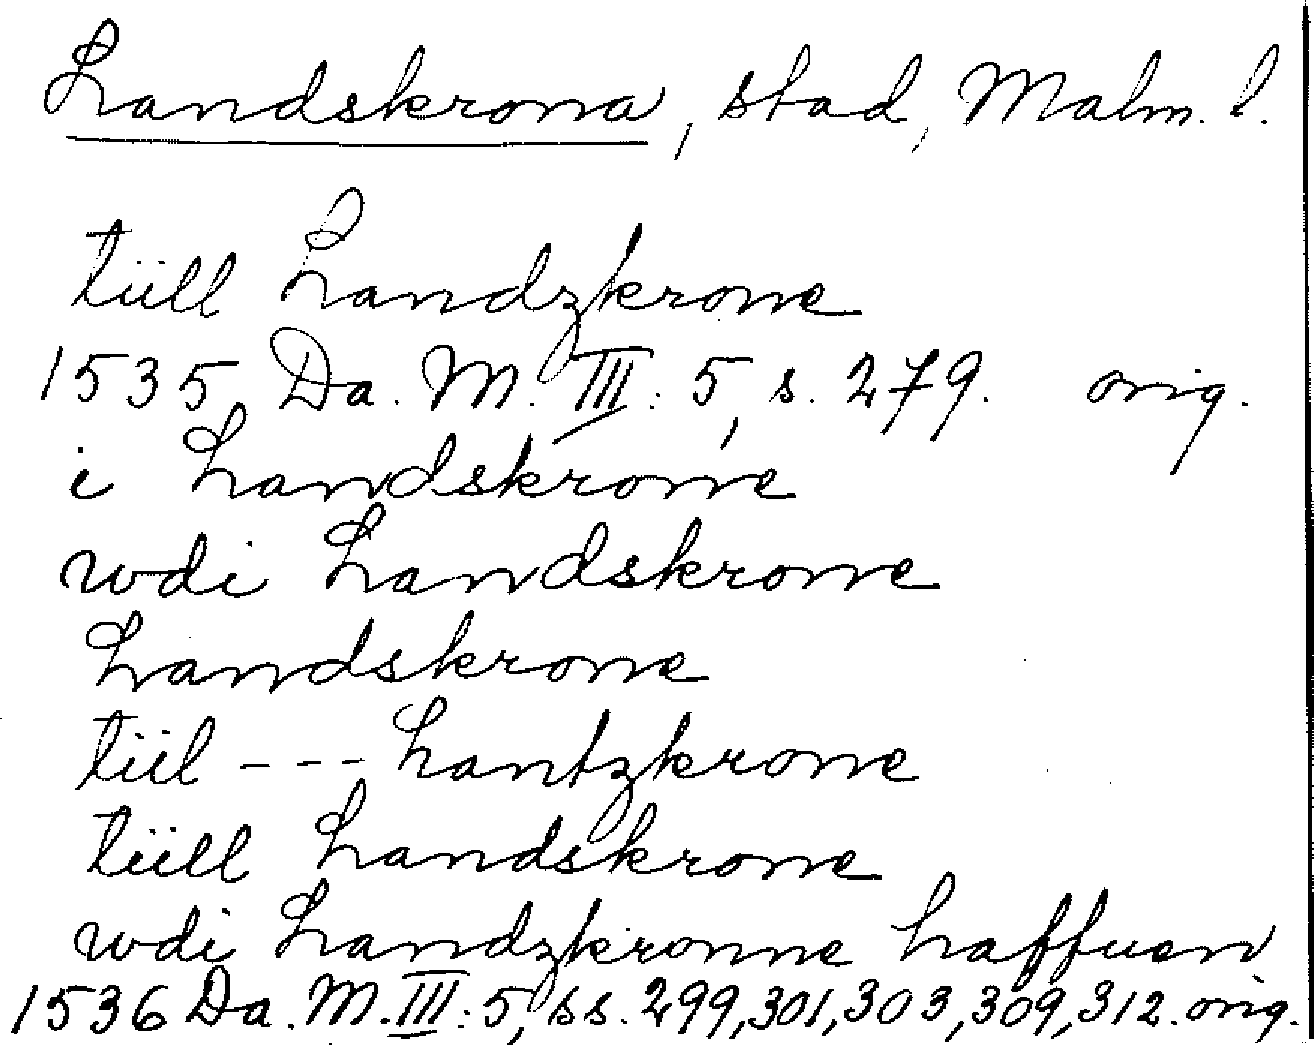 Landskrona, stad, Malm. l.
tiill Landzkrone
1535 Da. M. III: 5, s. 279. orig.
i Landskrone
wdi Landskrone
Landskrone
tiil --- Lantzkrone
tiill Landskrone
wdi Landzkronne haffuen
1536 Da. M. III: 5, ss. 299, 301, 303, 309, 312. orig.